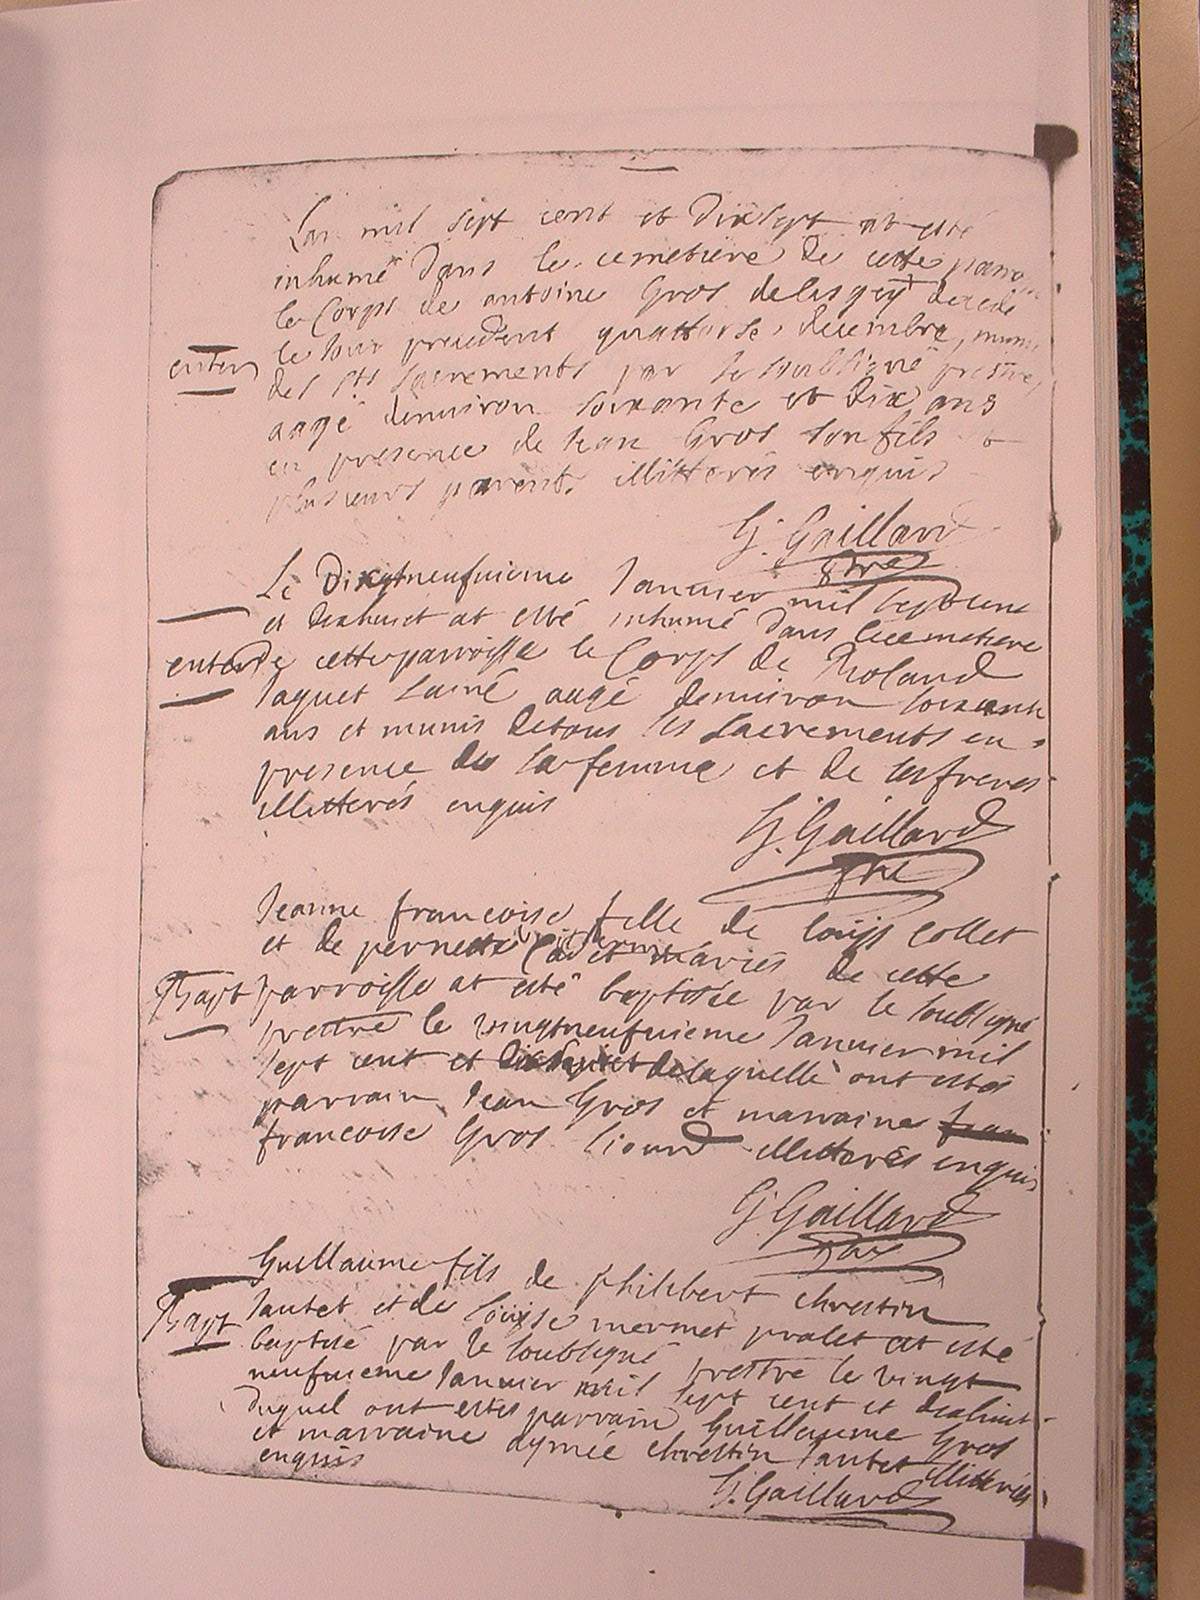 Lan mil sept cent et Dixsept at esté
inhumé dans le cemetiere de cette parro
le Corps de antoine Gros delasgey decedé
le Jour precedent quattorse decembre, muni
enterr des Sts sacrements par le soubsigné prettre,
aagé denuiron soixante et dix ans
en presence de Jean Gros son fils et
plusieurs parents illitterés enquis
G. Gaillard
ptre
Le Dixneufuieme Januier mil sept cent
et dixhuict at esté inhumé dans le cemetiere
enterr de cette parroisse le Corps de Roland
Jaquet lainé aagé denuiron soixante
ans et munis detous les sacrements en
presence de sa femme et de ses freres
illitterés enquis
G. Gaillard
ptre
Jeanne francoise fille de loüis collet
et de pernette mariés de cette
Bapt parroisse at esté baptisée par le soubsigné
prettre le vingtneufuieme Januier mil
sept cent et delaquelle ont estés
parrain Jean Gros et marraine fran
francoise Gros illitterés enquis
G. Gaillard
ptre
Guillaume fils de philibert chrestin
Bapt Jautet et de loüise mermet pralet at esté
baptisé par le soubsigné prettre le vingt
neufuieme Januier mil sept cent et dixhuict
duquel ont estes parrain Guillaume Gros
et marraine aymée chrestin Jautet illitterés
enquis
G. Gaillard